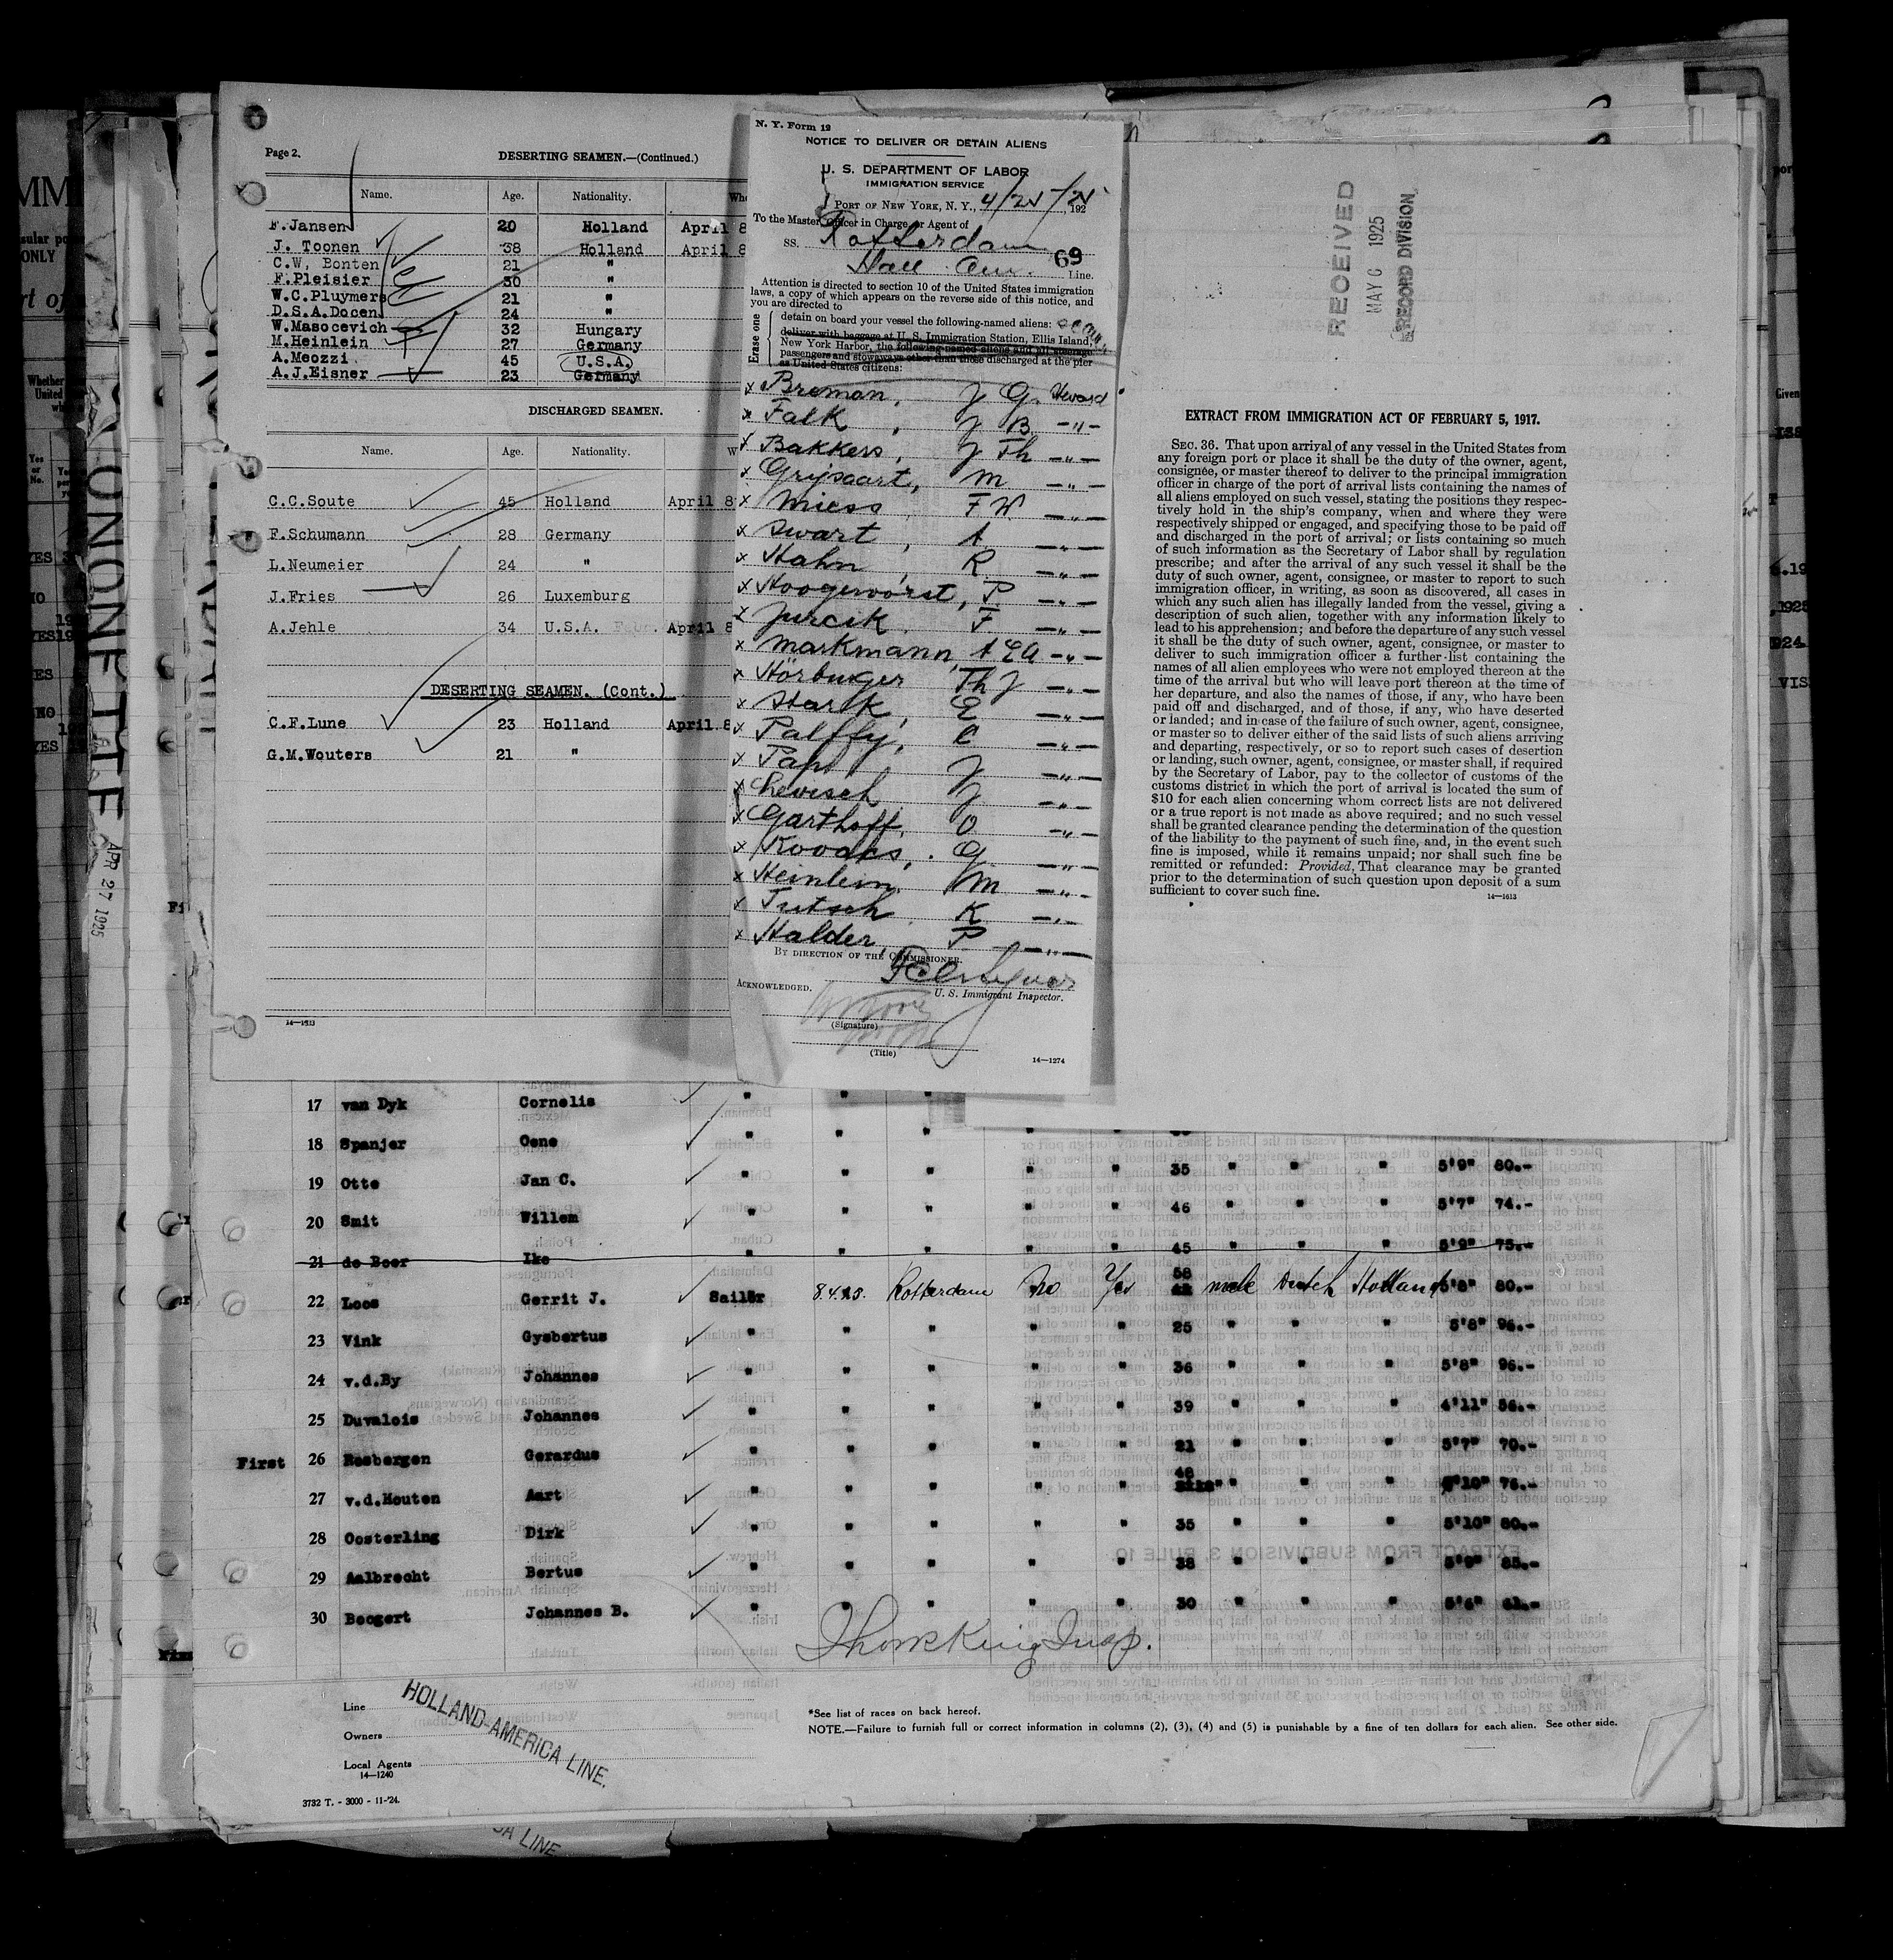 Page 2.
DESERTING SEAMEN.—(Continued.)
Name. Age. Nationality.
F.Jansen 20 Holland April 8
J. Toonen 38 Holland April 8
C.W. Bonten 21 "
F.Pleisier 30 "
W.C.Pluymers 21 "
D.S.A.Docen 24 "
W.Masocevich 32 Hungary
M.Heinlein 27 Germany
A.Meozzi 45 U.S.A.
A.J.Eisner 23 Germany
DISCHARGED SEAMEN.
Name. Age. Nationality.
C.C.Soute 45 Holland April 8
F.Schumann 28 Germany
L.Neumeier 24 "
J.Fries 26 Luxemburg
A.Jehle 34 U.S.A. April 8
DESERTING SEAMEN. (Cont.)
C.F.Lune 23 Holland April 8
G.M.Wouters 21 "
14—1613
N. Y. Form 19
NOTICE TO DELIVER OR DETAIN ALIENS
U. S. DEPARTMENT OF LABOR
IMMIGRATION SERVICE
PORT OF NEW YORK, N. Y., 4/25/25 192
To the Master, Officer in Charge or Agent of
SS. Rotterdam
Holl. Am. 69 Line.
Attention is directed to section 10 of the United States immigration
laws, a copy of which appears on the reverse side of this notice, and
you are directed to
Erase one
detain on board your vessel the following-named aliens:
deliver with baggage at U. S. Immigration Station, Ellis Island,
New York Harbor, the following-named aliens and all steerage
passengers and stowaways other than those discharged at the pier
as United States citizens:
x Breman, J G. Steward
x Falk, J B. -"-
x Bakkers, J Th -"-
x Grijsaart, M -"-
x Miess F W. -"-
x Swart, A -"-
x Hahn, R -"-
x Hoogervorst, P -"-
x Jurcik, F. -"-
x Markmann, A E A -"-
x Hörburger Th J -"-
x Stark, E -"-
x Palffy, C -"-
x Pap, J -"-
x Chevisch J -"-
x Garthoff, O -"-
x Kovacs, G. -"-
x Heinlein, M -"-
x Tutsch K -"-
x Halder, P -"-
BY DIRECTION OF THE COMMISSIONER.
U. S. Immigrant Inspector.
ACKNOWLEDGED.
(Signature)
(Title)
14—1274
RECEIVED
MAY 6 1925
RECORD DIVISION
EXTRACT FROM IMMIGRATION ACT OF FEBRUARY 5, 1917.
SEC. 36. That upon arrival of any vessel in the United States from
any foreign port or place it shall be the duty of the owner, agent,
consignee, or master thereof to deliver to the principal immigration
officer in charge of the port of arrival lists containing the names of
all aliens employed on such vessel, stating the positions they respec-
tively hold in the ship's company, when and where they were
respectively shipped or engaged, and specifying those to be paid off
and discharged in the port of arrival; or lists containing so much
of such information as the Secretary of Labor shall by regulation
prescribe; and after the arrival of any such vessel it shall be the
duty of such owner, agent, consignee, or master to report to such
immigration officer, in writing, as soon as discovered, all cases in
which any such alien has illegally landed from the vessel, giving a
description of such alien, together with any information likely to
lead to his apprehension; and before the departure of any such vessel
it shall be the duty of such owner, agent, consignee, or master to
deliver to such immigration officer a further list containing the
names of all alien employees who were not employed thereon at the
time of the arrival but who will leave port thereon at the time of
her departure, and also the names of those, if any, who have been
paid off and discharged, and of those, if any, who have deserted
or landed; and in case of the failure of such owner, agent, consignee,
or master so to deliver either of the said lists of such aliens arriving
and departing, respectively, or so to report such cases of desertion
or landing, such owner, agent, consignee, or master shall, if required
by the Secretary of Labor, pay to the collector of customs of the
customs district in which the port of arrival is located the sum of
$10 for each alien concerning whom correct lists are not delivered
or a true report is not made as above required; and no such vessel
shall be granted clearance pending the determination of the question
of the liability to the payment of such fine, and, in the event such
fine is imposed, while it remains unpaid; nor shall such fine be
remitted or refunded: Provided, That clearance may be granted
prior to the determination of such question upon deposit of a sum
sufficient to cover such fine.
14—1613
17 van Dyk Cornelis " " "
18 Spanjer Oene " " " " "
19 Otte Jan C. " " " " " 35 " " " 5'9" 80.-
20 Smit Willem " " " " " 46 " " " 5'7" 74.-
21 de Boer Ike " " " " " 45 " " " 5'9" 75.-
22 Loos Gerrit J. Sailor 8.4.25. Rotterdam No Yes 58 male Dutch Holland 5'8" 80.-
23 Vink Gysbertus " " " " " 25 " " " 5'8" 96.-
24 v.d.By Johannes " " " " " 36 " " " 5'8" 96.-
25 Duvalois Johannes " " " " " 39 " " " 4'11" 56.-
First 26 Rosbergen Gerardus " " " " " 21 " " " 5'7" 70.-
27 v.d.Houten Aart " " " " " 48 " " " 5'10" 76.-
28 Oosterling Dirk " " " " " 35 " " " 5'10" 80.-
29 Aalbrecht Bertus " " " " " 38 " " " 5'9" 85.-
30 Boogert Johannes B. " " " " " 30 " " " 5'6" 61.-
Thoms King Insp.
Line
Owners
Local Agents
14—1240
HOLLAND-AMERICA LINE.
3732 T. - 3000 - 11-'24.
*See list of races on back hereof.
NOTE.—Failure to furnish full or correct information in columns (2), (3), (4) and (5) is punishable by a fine of ten dollars for each alien. See other side.
APR 27 1925